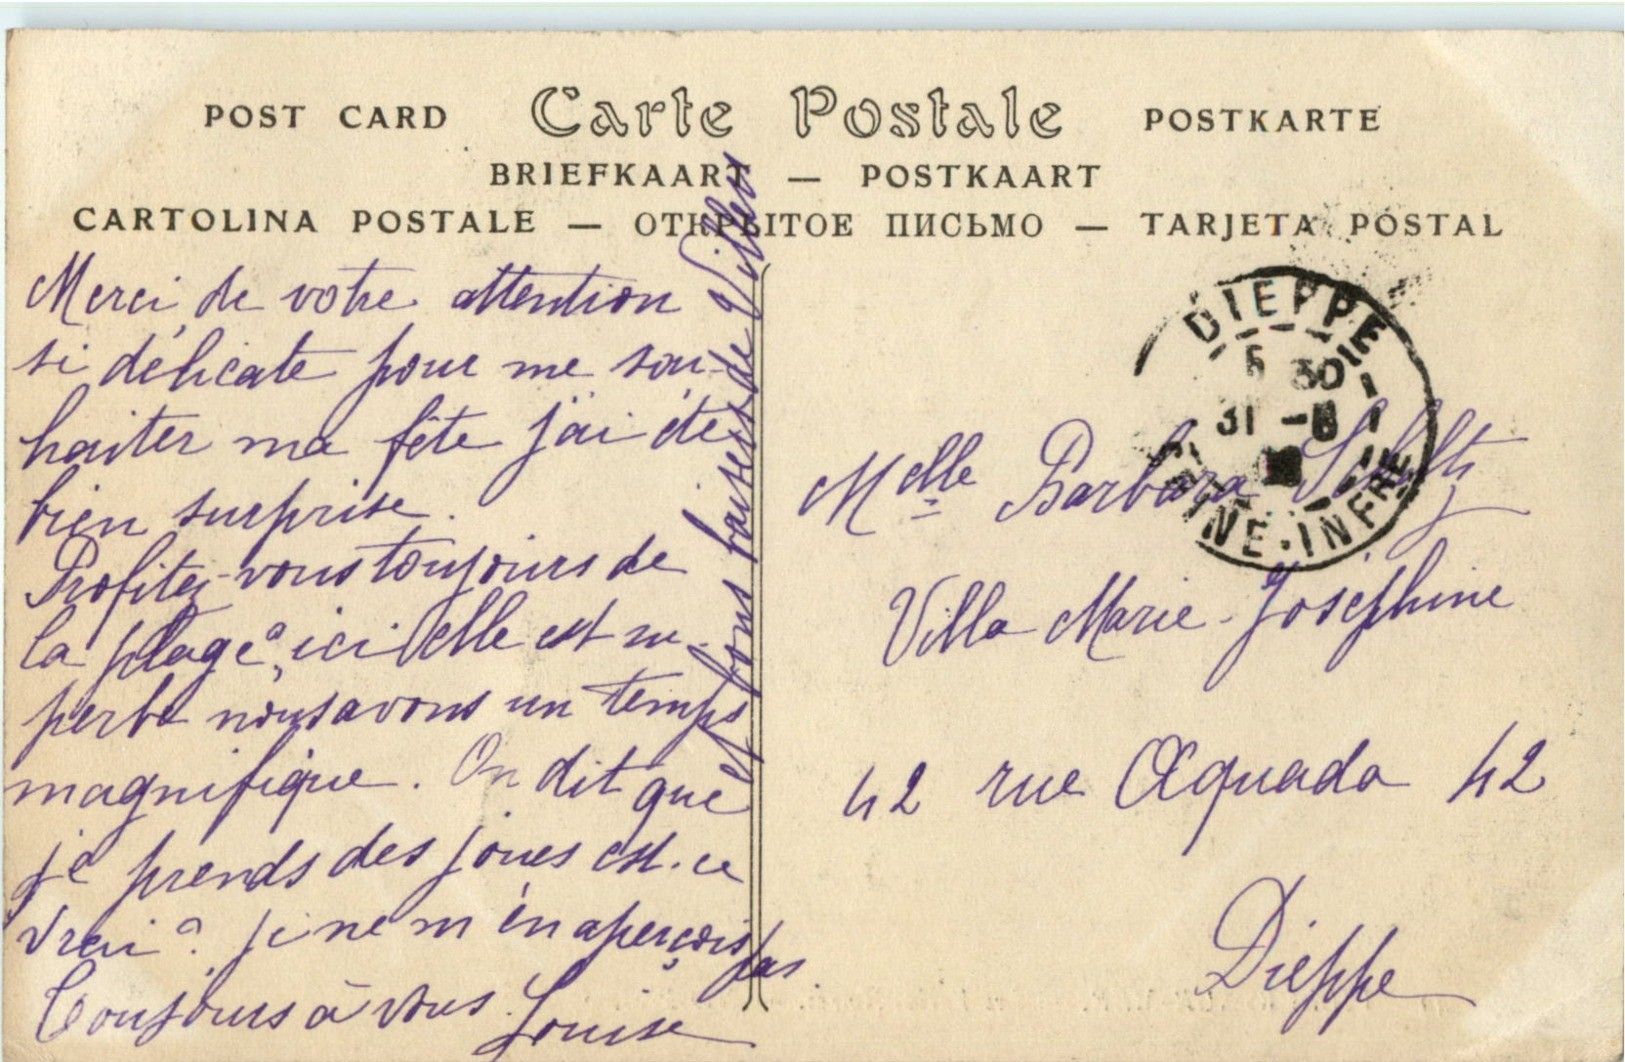 POST CARD Carte Postale POSTKARTE
BRIEFKAART — POSTKAART
CARTOLINA POSTALE — ОТКРЫТОЕ ПИСЬМО — TARJETA POSTAL
Merci de votre attention
si délicate pour me sou-
haiter ma fête j'ai été
bien surprise.
Profitez-vous toujours de
la plage? ici elle est su-
perbe nous avons un temps
magnifique. On dit que
je prends des joues est-ce
vrai? je ne m'en aperçois pas
Toujours à vous. Louise
et bons baisers de Villers
DIEPPE
5 30
31 - 8
SEINE-INFRE
Melle Barbara
Villa Marie-Joséphine
42 rue Aguado 42
Dieppe